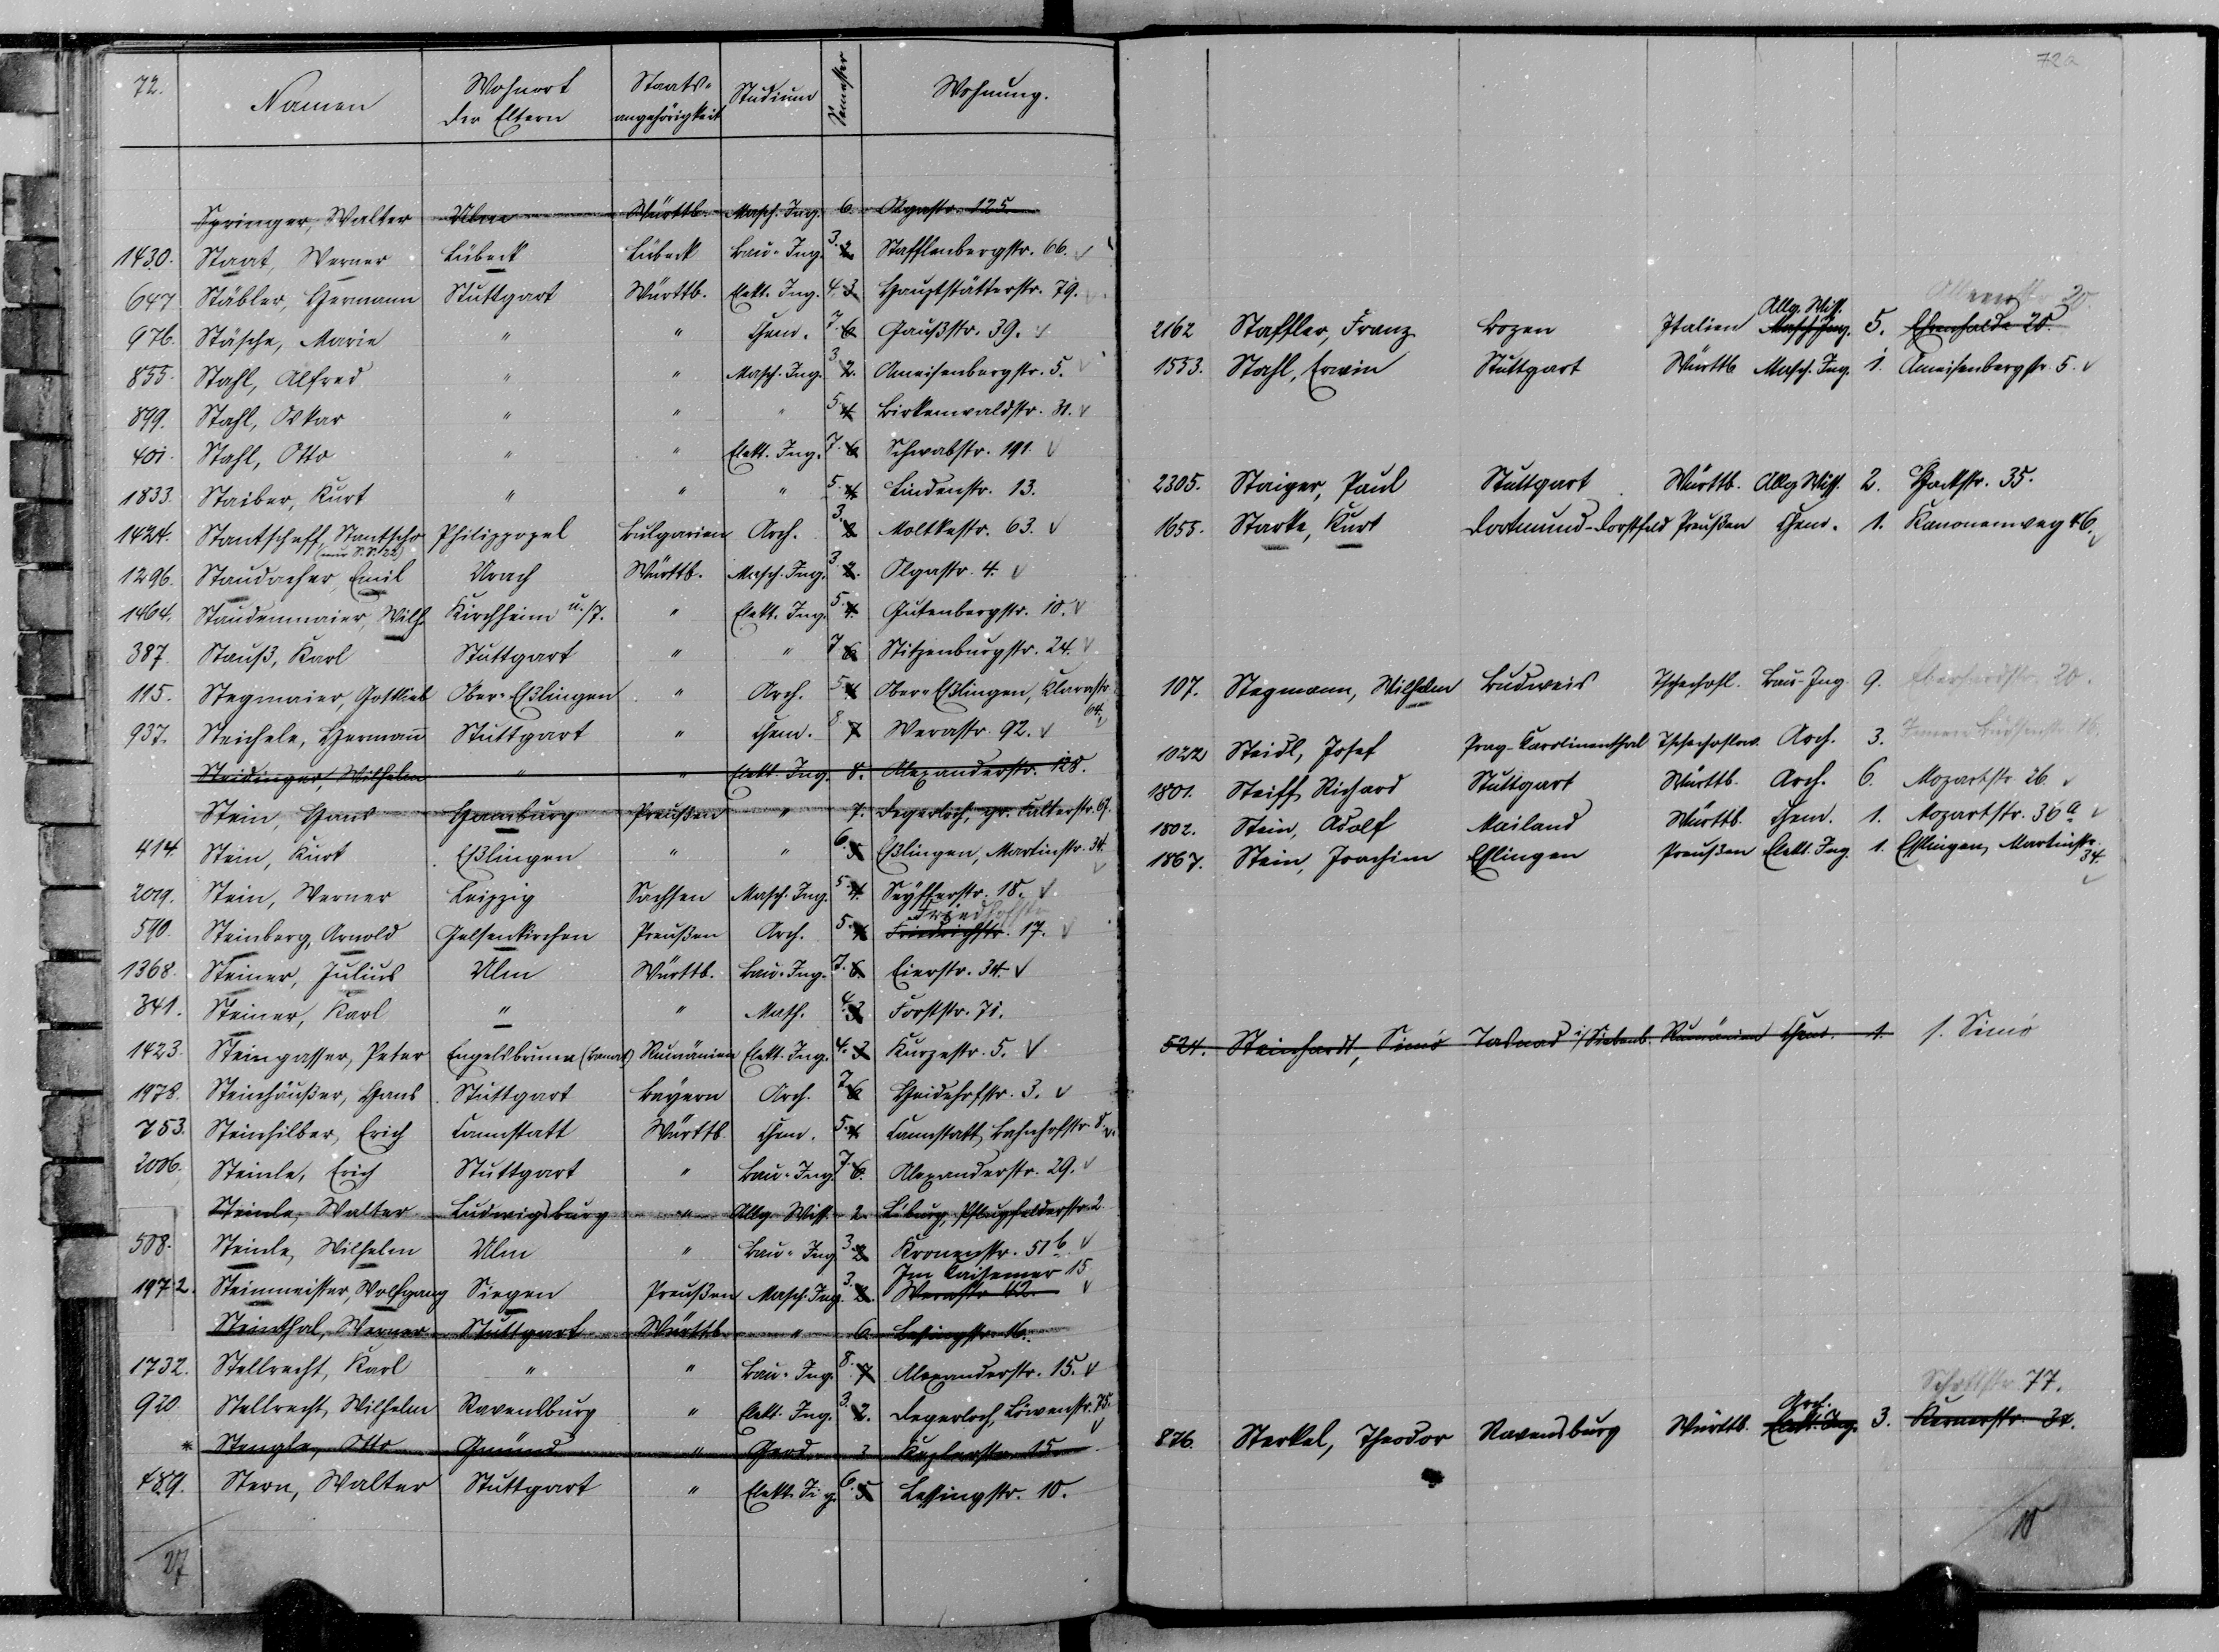 72. Namen Wohnort der Eltern Staats- angehörigkeit Studium Semester Wohnung.
Springer, Walter Ulm Württb. Masch. Ing. 6. Olgastr. 125
1430. Staat, Werner Lübeck Lübeck Bau-Ing. 3. 2 Stafflenbergstr. 66. ✓
647 Stäbler, Hermann Stuttgart Württb. Elekt. Ing. 4. 3. Hauptstätterstr. 79.
976. Stäsche, Marie " " Chem. 7. 6 Gaußstr. 39. ✓
855. Stahl, Alfred " " Masch. Ing. 3. 2. Ameisenbergstr. 5. ✓
899. Stahl, Oskar " " " 5. 4 Birkenwaldstr. 31. ✓
401. Stahl, Otto " " Elekt. Ing. 7. 6 Schwabstr. 191 ✓
1833. Staiber, Kurt " " " 5. 4 Lindenstr. 13.
1424. Stantscheff, Stantscho Philippopel Bulgarien Arch. 3. 2 Moltkestr. 63. ✓
(nur S.S. 22)
1296. Staudacher, Emil Urach Württb. Masch. Ing. 3. 2. Olgastr. 4. ✓
1464. Staudenmaier, Wilh. Kirchheim u./T. " Elekt. Ing. 5. 4. Gutenbergstr. 10. ✓
387. Stauß, Karl Stuttgart " " 7 6 Stitzenburgstr. 24. ✓
115. Stegmaier, Gottlieb Ober-Eßlingen " Arch. 5. 4 Ober-Eßlingen, Klarastr. 64. ✓
937. Steichele, Hermann Stuttgart " Chem. 8 7 Werastr. 92. ✓
Steidinger, Wilhelm " " Elekt. Ing. 8. Alexanderstr. 128.
Stein, Hans Hamburg Preußen " 7. Degerloch, gr. Falterstr. 67.
414. Stein, Kurt Eßlingen " " 6. 5 Eßlingen, Martinstr. 34. ✓
2019. Stein, Werner Leipzig Sachsen Masch. Ing. 5. 4. Seyfferstr. 18. ✓
Friedhofstr.
590. Steinberg, Arnold Gelsenkirchen Preußen Arch. 5. 4 Friedrichstr. 17. ✓
1368. Steiner, Julius Ulm Württb. Bau-Ing. 7. 6. Eierstr. 34. ✓
341. Steiner, Karl " " Math. 4. 3. Forststr. 71.
1423. Steingasser, Peter Engelsbrunn (Banat) Rumänien Elekt. Ing. 4. 3 Kurzestr. 5. ✓
1978. Steinhäußer, Hans Stuttgart Bayern Arch. 7. 6 Heidehofstr. 3. ✓
753. Steinhilber, Erich Cannstatt Württb. Chem. 5. 4 Cannstatt, Bahnhofstr. 8. ✓
2006. Steinle, Erich Stuttgart " Bau-Ing. 7. 6. Alexanderstr. 29. ✓
Steinle, Walter Ludwigsburg " Allg. Wiss. 2. L'burg, Pflugfelderstr. 2
508. Steinle, Wilhelm Ulm " Bau-Ing. 3. 2 Kronenstr. 51 b. ✓
Im Kaisemer 15
1972. Steinmeister, Wolfgang Siegen Preußen Masch. Ing. 3. 2. Werastr. 62. ✓
Steinthal, Werner Stuttgart Württb. " 6. Lessingstr. 16.
1732. Stellrecht, Karl " " Bau-Ing. 8. 7 Alexanderstr. 15. ✓
920. Stellrecht, Wilhelm Ravensburg " Elekt. Ing. 3. 2. Degerloch, Löwenstr. 75. ✓
Stengle, Otto Gmünd " Geod. 3 Keplerstr. 15
489. Stern, Walter Stuttgart " Elekt. Ing. 6. 5 Lessingstr. 10.
27
72a
Allg. Wiss. 20
2162 Staffler, Franz Bozen Italien Masch. Ing. 5. Ehrenhalde 20.
1553. Stahl, Erwin Stuttgart Württb. Masch. Ing. 1. Ameisenbergstr. 5. ✓
2305. Staiger, Paul Stuttgart Württb. Allg. Wiss. 2. Hackstr. 35.
1655. Starke, Kurt Dortmund-Dorstfeld Preußen Chem. 1. Kanonenweg 46. ✓
107. Stegmann, Wilhelm Budweis Tschechosl. Bau-Ing. 9. Eberhardstr. 20.
1022 Steidl, Josef Prag-Karolinenthal Tschechoslow. Arch. 3. Innere Büchsenstr. 16.
1801. Steiff, Richard Stuttgart Württb. Arch. 6. Mozartstr. 26 ✓
1802. Stein, Adolf Mailand Württb. Chem. 1. Mozartstr. 36 a ✓
1867. Stein, Joachim Esslingen Preußen Elekt. Ing. 1. Esslingen, Martinstr. 34 ✓
524. Steinhardt, Simó Tasnad i/Siebenb. Rumänien Chem. 1. s. Simó
Arch. 77.
876. Sterkel, Theodor Ravensburg Württb. Elekt. Ing. 3. Kernerstr. 34.
10